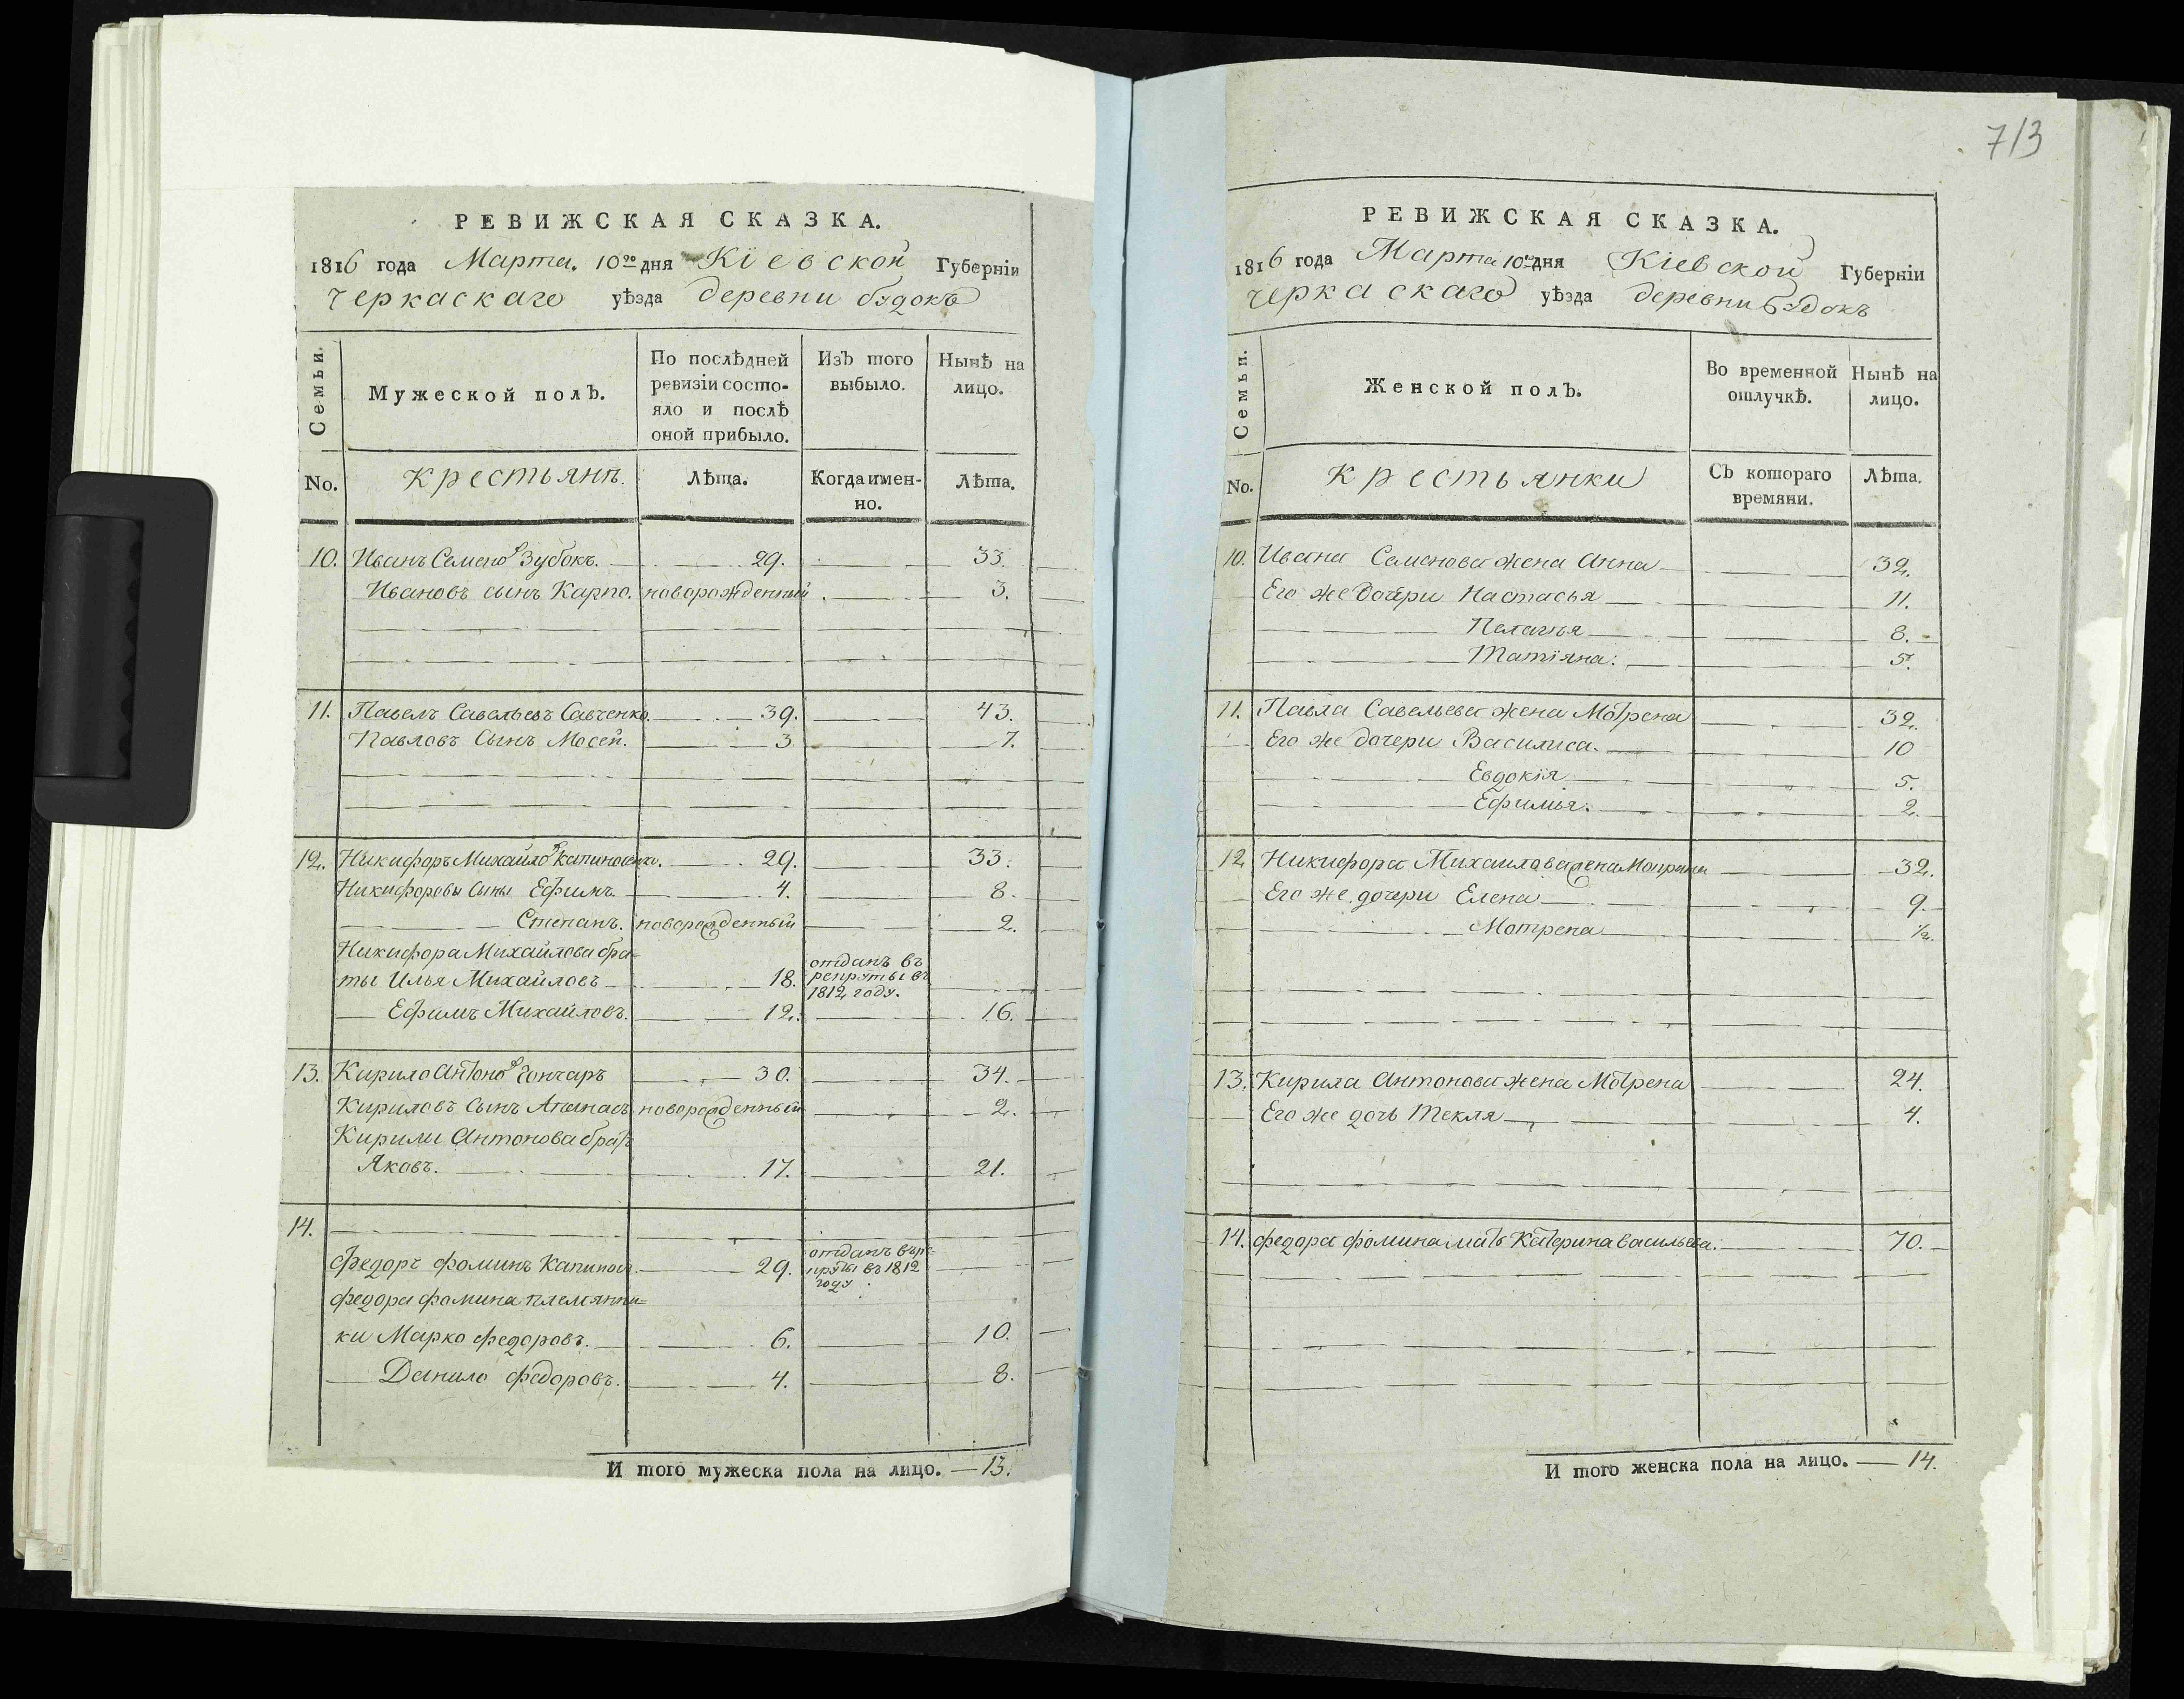 РЕВИЖСКАЯ СКАЗКА.
1816 года Марта. 10го дня Кіевской Губерніи
черкаскаго уѣзда деревни будокъ
Семьи.
Мужеской полЪ.
По послѣдней ревизіи состо-
яло и послѣ
оной прибыло.
ИзЪ того
выбыло.
Нынѣ на
лицо.
No. крестьянъ. Лѣта. Когда имен-
но. Лѣта.
10. Иванъ Семено Зубокъ. 29. 33.
Ивановъ сынъ Карпо. новорожденный 3.
11. Павелъ Савельевъ Савченко. 39. 43.
Павловъ Сынъ Мосей. 3 7.
12. Никифоръ Михайло 29. 33.
Никифоровы Сыны Ефимъ. 4. 8.
Степанъ. новорожденный 2.
Никифора Михайлова бра=
ты Илья Михайловъ 18. отданъ въ
рекруты въ
1812 году.
Ефимъ Михайловъ. 12. 16.
13. Кирило Антоно Гончаръ 30. 34.
Кириловъ Сынъ новорожденный 2.
Кирили Антонова братъ
Яковъ. 17. 21.
14.
Федоръ фоминъ 29. отданъ въ рекруты въ 1812
году
федора фомина племянни=
ки Марко федоровъ. 6. 10.
Данило федоровъ. 4. 8.
И того мужеска пола на лицо. — 13.
713
РЕВИЖСКАЯ СКАЗКА.
1816 года Марта 10го дня Кіевской Губерніи
черкаскаго уѣзда деревни будокъ
Семьи.
Женской полЪ.
Во временной
отлучкѣ.
Нынѣ на
лицо.
No. крестьянки СЪ котораго
времяни. Лѣта.
10. Ивана Семенова жена Анна 32.
Его же дочери Настасья 11.
Пелагѣя 8.
Татіяна. 5.
11. Павла Савельева жена Мотрена 32.
Его же дочери Василиса. 10
Евдокія 5.
Ефимія. 2.
12. Никифора Михаилова жена Мотрена 32.
Его же дочери Елена 9.
Мотрена ½.
13. Кирила Антонова жена Мотрена 24.
Его же дочь Текля 4.
14. федора фомина мать Катерина васильева. 70.
И того женска пола на лицо. — 14.